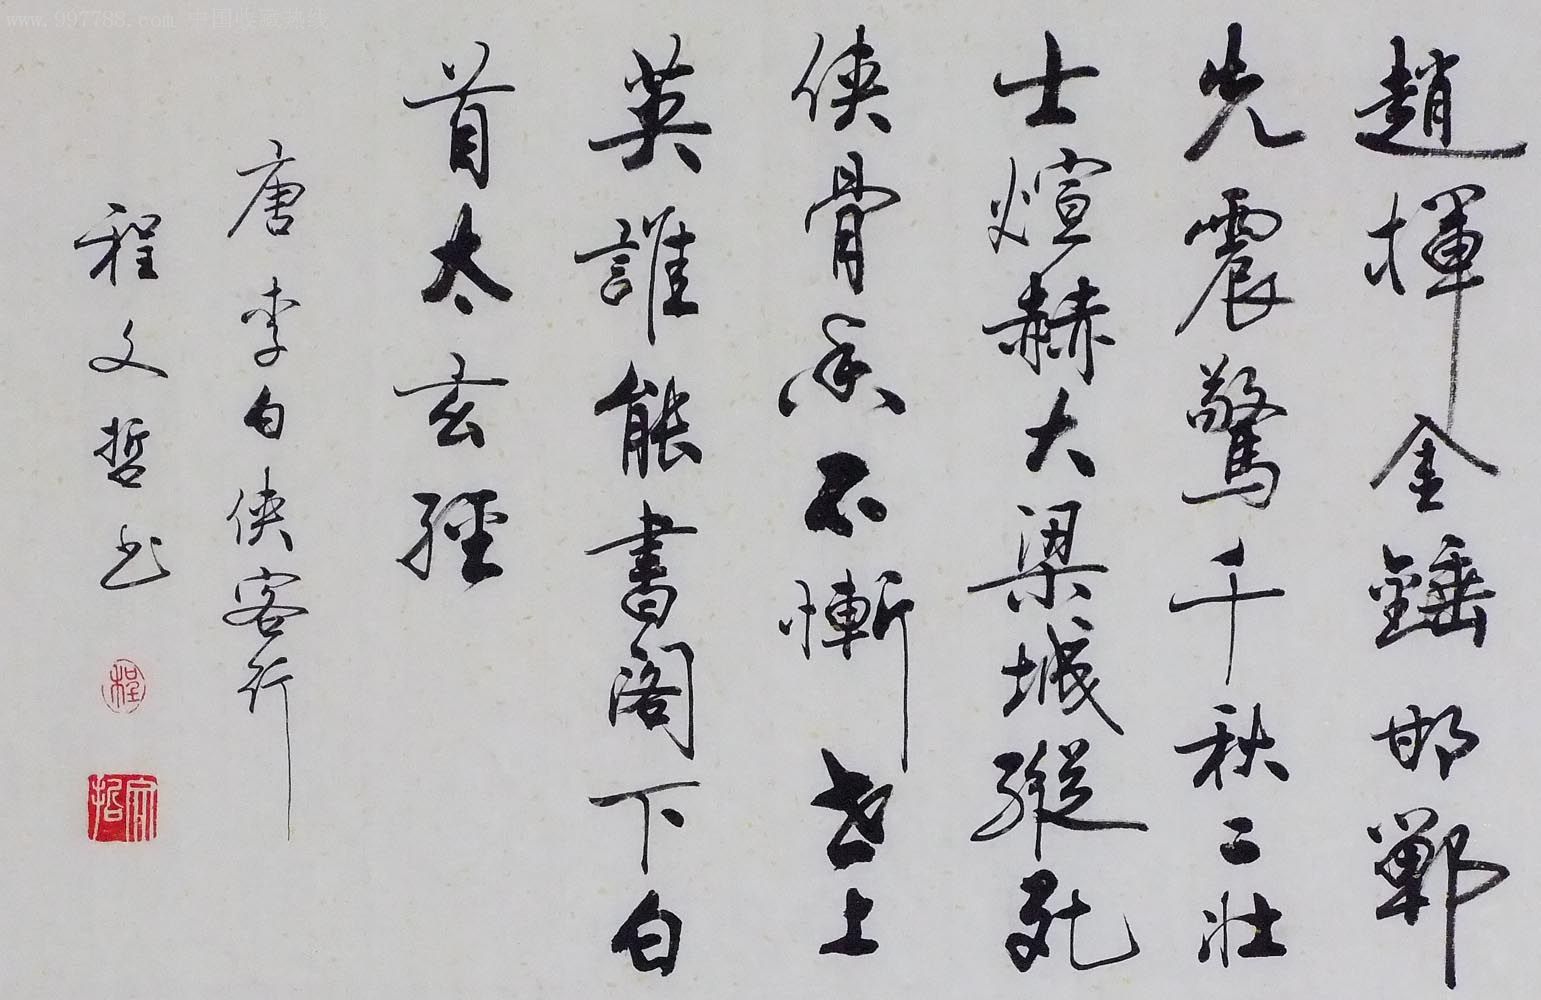 趙揮金錘邯鄲
先震驚千秋二壯
士煊赫大梁城縱死
俠骨香不慚世上
英誰能書閣下白
首太玄經
唐李白俠客行
程文哲书
程
www.997788.com 中国收藏热线